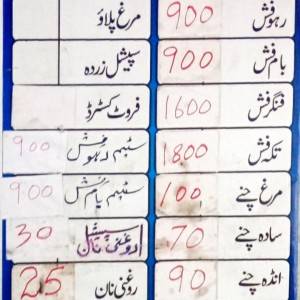 رہو فش 900
بام فش 900
فنگر فش 1600
تکہ فش 1800
مرغ چنے 100
سادہ چنے 70
انڈہ چنے 90
مرغ پلاؤ
سپیشل زردہ
فروٹ کسٹرڈ
سٹیم رہو فش 900
سٹیم بام فش 900
روغنی نان 30
روغنی نان 25